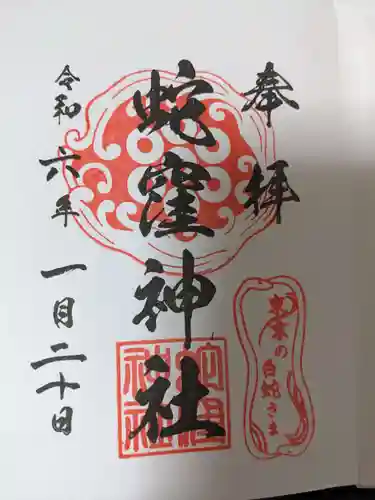 奉拝
蛇窪神社
令和六年
一月二十日
東京の
白蛇さま
蛇窪
神社